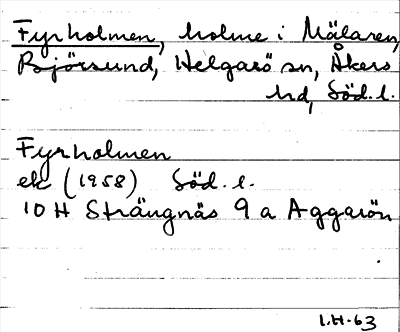 Fyrholmen, holme i Mälaren,
Björsund, Helgarö sn, Åkers
hd, Söd. l.
Fyrholmen
ek (1958) Söd. l.
10 H Strängnäs 9 a Aggarön
I.H-63